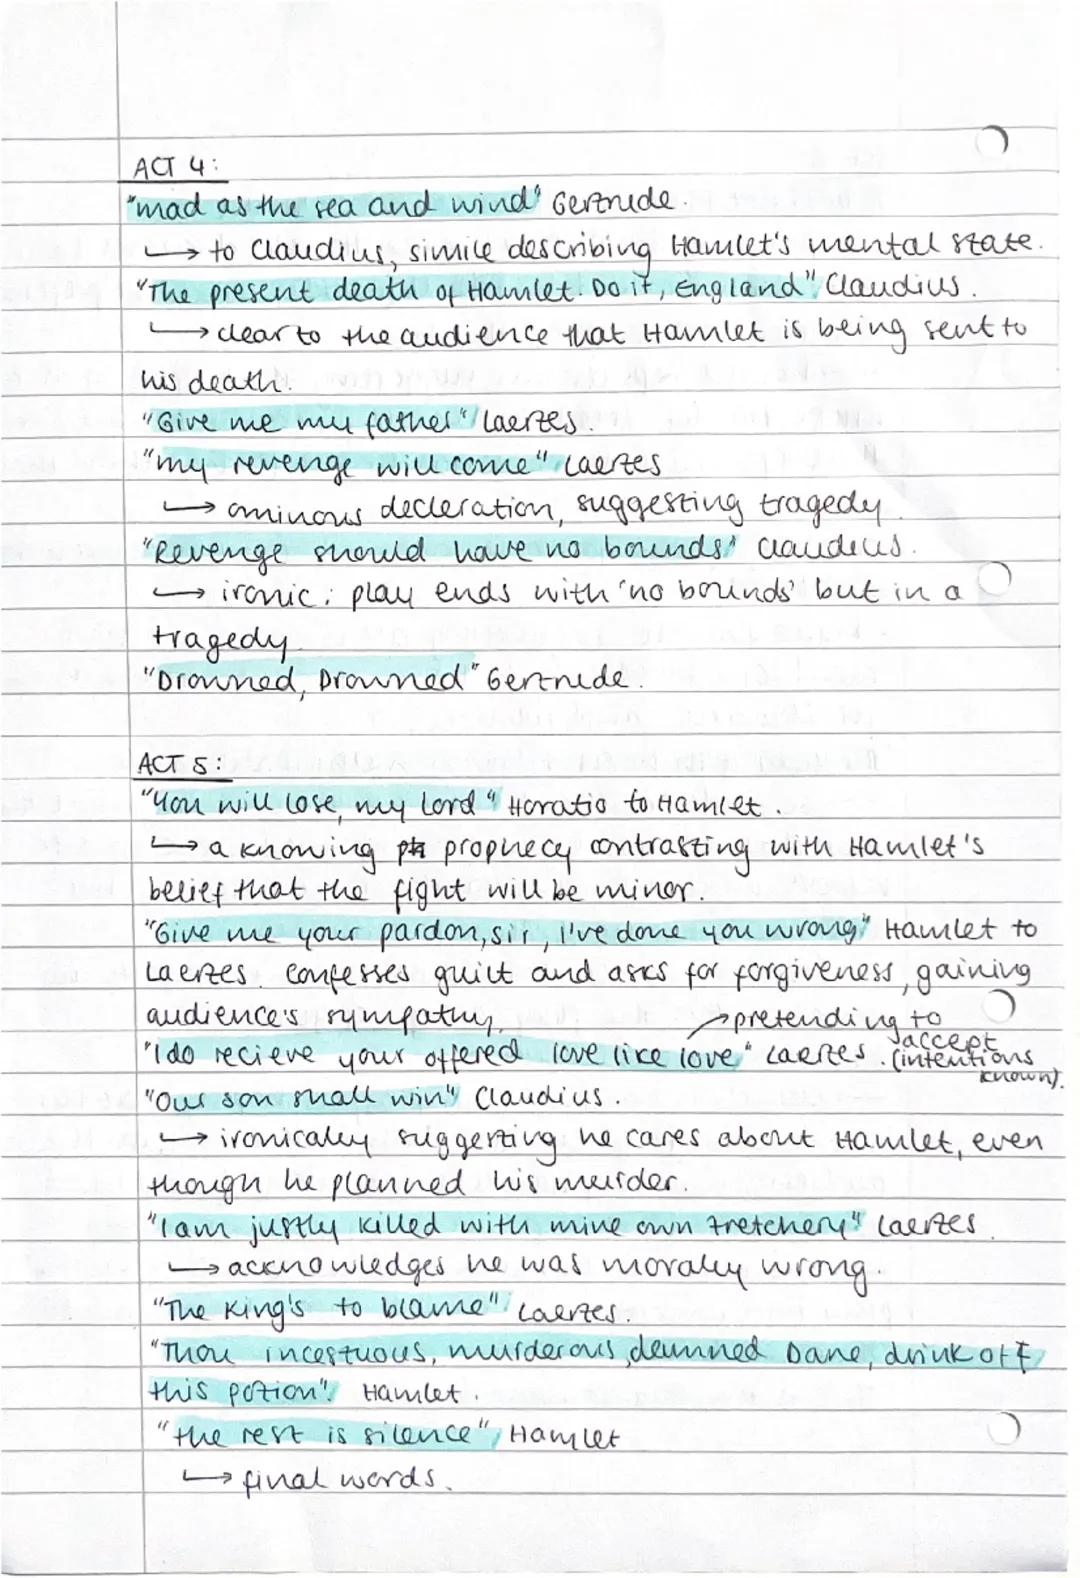 ACT 4:
"mad as the sea and wind" Gertrude.
→ to Claudius, simile describing Hamlet's mental state.
"The present death of Hamlet. Do it, England" Claudius.
→ clear to the audience that Hamlet is being sent to
his death.
"Give me my father" Laertes.
"my revenge will come" Laertes
→ ominous decleration, suggesting tragedy.
"Revenge should have no bounds" Claudius.
→ ironic: play ends with 'no bounds' but in a
tragedy.
"Drowned, Drowned" Gertrude.
ACT 5:
"You will lose, my Lord" Horatio to Hamlet.
→ a knowing prophecy contrasting with Hamlet's
belief that the fight will be minor.
"Give me your pardon, sir, I've done you wrong" Hamlet to
Laertes. Confesses guilt and asks for forgiveness, gaining
audience's sympathy.
→ pretending to
accept
"I do recieve your offered love like love" Laertes. (intentions
known).
"Our son shall win" Claudius.
→ ironicaley suggesting he cares about Hamlet, even
though he planned his murder.
"I am justly killed with mine own tretchery" Laertes.
→ acknowledges he was moraley wrong.
"The King's to blame" Laertes.
"Thou incestuous, murderous, damned Dane, drink off
this potion". Hamlet.
"the rest is silence", Hamlet
→ final words.